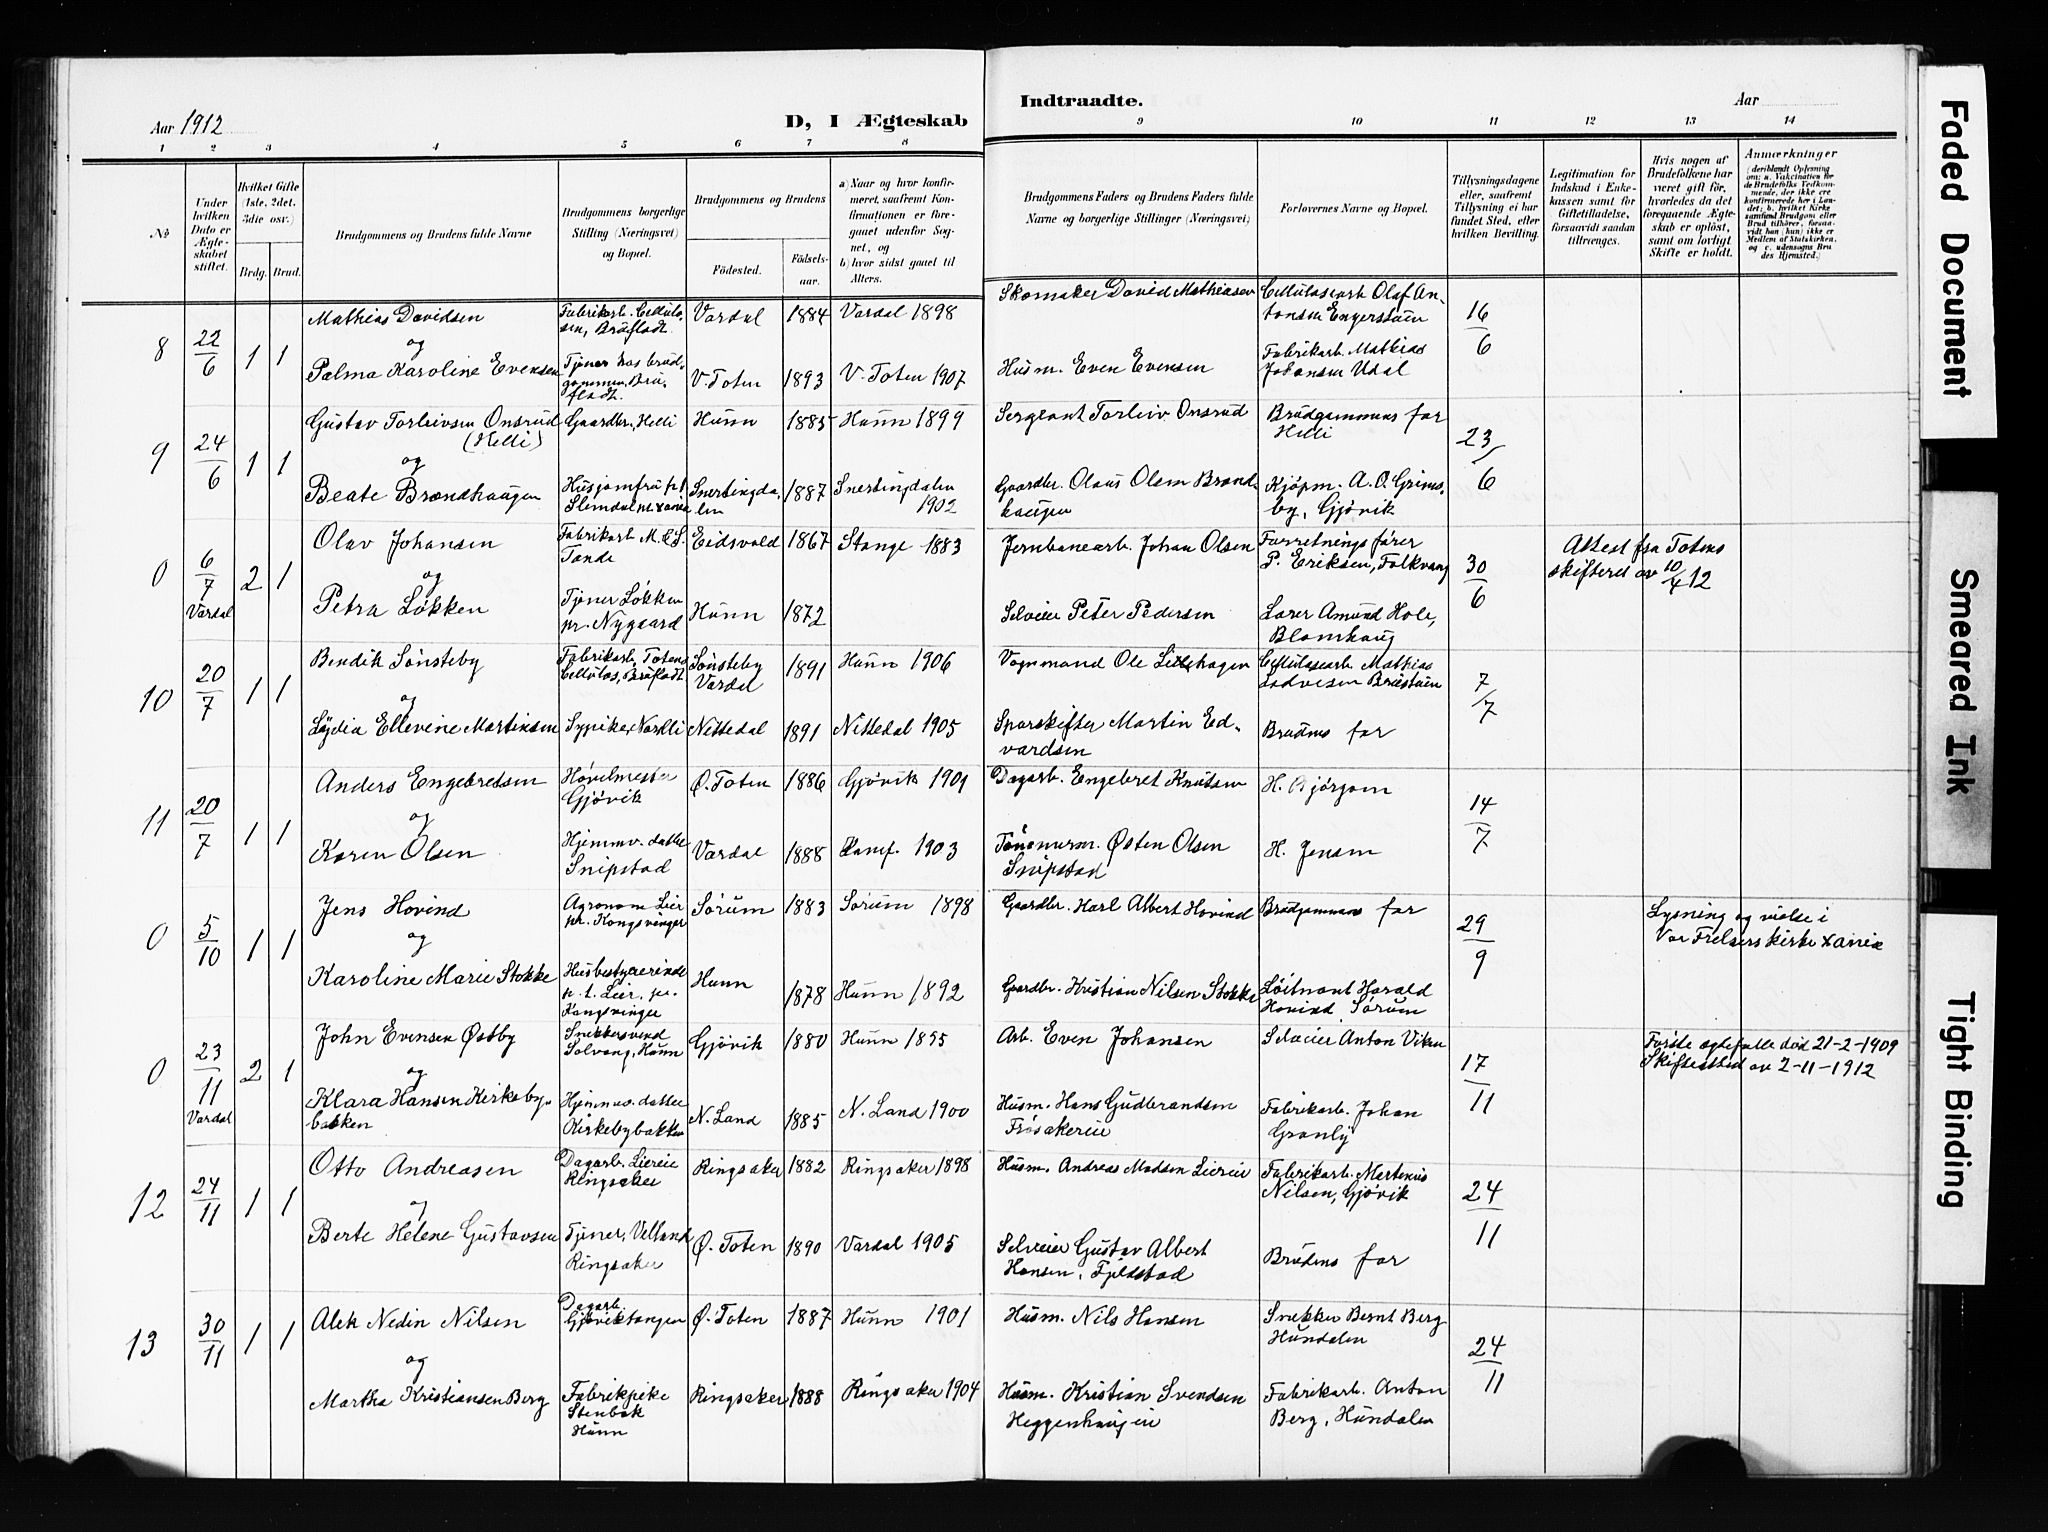 Aar 1912
D, I Ægteskab
Indtraadte.
Aar
1 2 3 4 5 6 7 8 9 10 11 12 13 14
No
Under hvilken Dato er Ægteskabet stiftet.
Hvilket Gifte (1ste, 2det, 3die osv.)
Brdg. Brud.
Brudgommens og Brudens fulde Navne
Brudgommens borgerlige Stilling (Næringsvei) og Bopæl.
Brudgommens og Brudens
Födested.
Födsels-aar.
a) Naar og hvor konfirmeret, saafremt Konfirmationen er foregaaet udenfor Sognet, og
b) hvor sidst gaaet til Alters.
Brudgommens Faders og Brudens Faders fulde Navne og borgerlige Stillinger (Næringsvei)
Forlovernes Navne og Bopæl.
Tillysningsdagene eller, saafremt Tillysning ei har fundet Sted, efter hvilken Bevilling.
Legitimation for Indskud i Enkekassen samt for Giftetilladelse, forsaavidt saadan tiltrænges.
Hvis nogen af Brudefolkene har været gift för, hvorledes da det foregaaende Ægteskab er oplöst, samt om lovligt Skifte er holdt.
Anmærkninger (deriblandt Oplysning om: a. Vakcination for de Brudefolks Vedkommende, der ikke ere konfirmerede her i Landet; b. hvilket Kirkesamfund Brudgom eller Brud tilhører, forsaavidt han (hun) ikke er Medlem af Statskirken, og c. udensogns Brudes Hjemsted.)
8 22/6 1 1
Mathias Davidsen
Fabrikarb. Cellulosen, Bråstadt.
Vardal 1884 Vardal 1898
Skomaker David Mathiesen
Cellulosearb Olaf Antonsen Engerstuen
16/6
og
Palma Karoline Evensen
Tjener hos brudgommen, Bråstadt.
V. Toten 1893 V. Toten 1907
Husm. Even Evensen
Fabrikarb. Mathias Johansen Udal
9 24/6 1 1
Gustav Torleivsen Onsrud (Helli)
Gaardbr. Helli
Hunn 1885 Hunn 1899
Sergeant Torleiv Onsrud
Brudgommens far Helli
23/6
og
Beate Brændhaugen
Husjomfru p.t. Slemdal pr. Xania
Snertingdalen 1887 Snertingdalen 1902
Gaardbr. Olaus Olsen Brændhaugen
Kjøpm. A. O. Grimsby, Gjøvik
0 6/7 Vardal 2 1
Olav Johansen
Fabrikarb M. C. S. Tande
Eidsvold 1867 Stange 1883
Jernbanearb. Johan Olsen
Forretningsfører P. Eriksen, Folkvang
30/6
Attest fra Totens skifteret av 10/4 12
og
Petra Løkken
Tjener Løkken pr. Nygaard
Hunn 1872
Selveier Peter Pedersen
Lærer Amund Hole, Blomhaug
10 20/7 1 1
Bendik Sønsteby
Fabrikarb. Totens Cellulos, Bråstadt
Sønsteby Vardal 1891 Hunn 1906
Vognmand Ole Lillehagen
Cellulosearb. Mathias Ludvesen Bråstuen
7/7
og
Lydia Ellevine Martinsen
Sypike, Nordli
Nittedal 1891 Nittedal 1905
Sporskifter Martin Edvardsen
Brudens far
11 20/7 1 1
Anders Engebretsen
Høvelmester Gjøvik
Ø. Toten 1886 Gjøvik 1901
Dagarb. Engebret Knutsen
H. Bjørgom
14/7
og
Karen Olsen
Hjemmev. datter Snipstad
Vardal 1888 Conf. 1903
Tømmerm. Østen Olsen Snipstad
H. Jensen
0 5/10 1 1
Jens Hovind
Agronom Lier pr. Kongsvinger
Sørum 1883 Sørum 1898
Gaardbr. Karl Albert Hovind
Brudgommens far
29/9
Lysning og vielse i Vor Frelsers kirke Xania
og
Karoline Marie Stokke
Husbestyrerinde p.t. Lier, pr. Kongsvinger
Hunn 1878 Hunn 1892
Gaardbr. Kristian Nilsen Stokke
Løitnant Harald Hovind, Sørum
0 23/11 Vardal 2 1
John Evensen Østby
Snekkersvend Solvang, Hunn
Gjøvik 1880 Hunn 1895
Arb. Even Johansen
Selveier Anton Viken
17/11
Første egtefælle død 21-2-1909
Skifteattest av 2-11-1912
og
Klara Hansen Kirkebybakken
Hjemmev. datter Kirkebybakken
N. Land 1885 N. Land 1900
Husm. Hans Gudbrandsen Frøsakereie
Fabrikarb. Johan Granly
12 24/11 1 1
Otto Andreasen
Dagarb. Liereie Ringsaker
Ringsaker 1882 Ringsaker 1898
Husm. Andreas Madsen Liereie
Fabrikarb. Martenius Nilsen, Gjøvik
24/11
og
Berte Helene Gustavsen
Tjener, Velland Ringsaker
Ø. Toten 1890 Vardal 1905
Selveier Gustav Albert Hansen, Fjeldstad
Brudens far
13 30/11 1 1
Alek Nedin Nilsen
Dagarb. Gjøviktangen
Ø. Toten 1887 Hunn 1901
Husm. Nils Hansen
Snekker Bernt Berg Hundalen
24/11
og
Martha Kristiansen Berg
Fabrikpike Stenbek Hunn
Ringsaker 1888 Ringsaker 1904
Husm. Kristian Svendsen Heggenhaugen
Fabrikarb. Anton Berg, Hundalen
Faded Document
Smeared Ink
Tight Binding